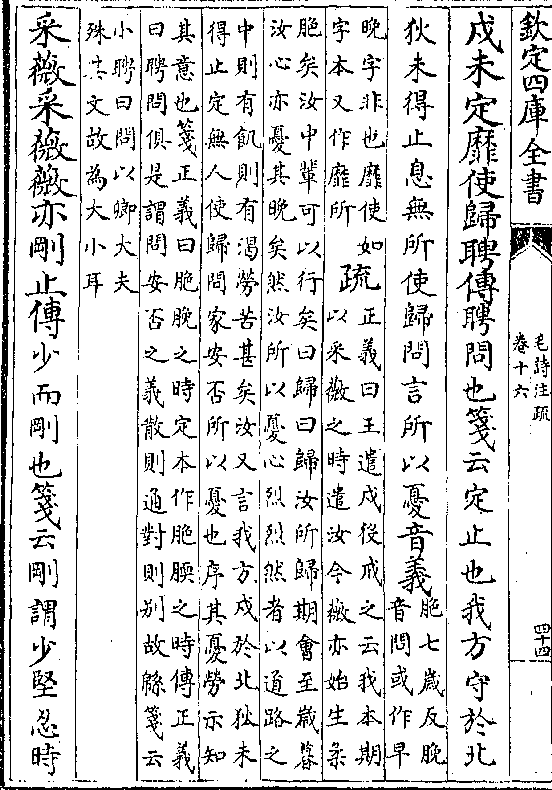 欽定四庫全書
毛詩注疏
卷十六
四十四
戍未定靡使歸聘傳聘問也箋云定止也我方守於北
狄未得止息無所使歸問言所以憂音義
脃七歲反脕
音問或作早
晚字非也靡使如
字本又作靡所
疏
正義曰王遣戍役戒之云我本期
以采薇之時遣汝今薇亦始生柔
脃矣汝中輩可以行矣曰歸曰歸汝所歸期會至歲暮
汝心亦憂其晚矣然汝所以憂心烈烈然者以道路之
中則有飢則有渴勞苦甚矣汝又言我方戍於北狄未
得止定無人使歸問家安否所以憂也序其憂勞示知
其意也箋正義曰脃脕之時定本作脃腝之時傳正義
曰聘問俱是謂問安否之義散則通對則别故緜箋云
小聘曰問以卿大夫
殊其文故為大小耳
采薇采薇薇亦剛止傳少而剛也箋云剛謂少堅忍時